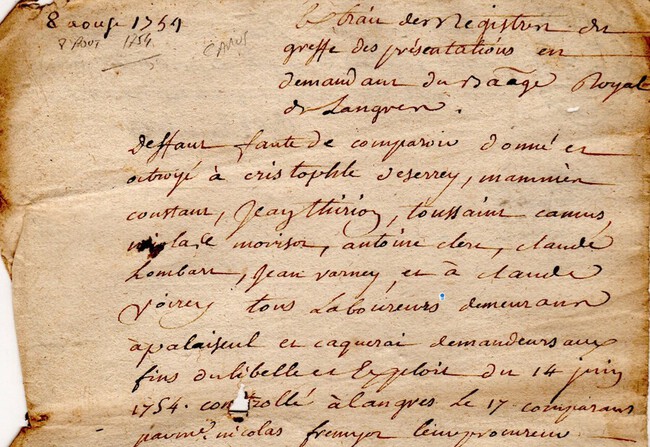 8 aoust 1754
8 AOUT 1754 CAMUS
Extrai des Registres du
greffe des présentations en
demandant du Baãge Royal
de Langres.
Deffaut faute de comparoir donné et
octroyé à cristophle deserrey, mammes
constant, Jean thirion, toussaint camus,
nicolas morisot, antoine clerc, claude
Lombart, Jean varney, et à claude
Voirey tous Laboureurs demeurans
à palaiseul et caquerai demandeurs aux
fins du libelle et Exploit du 14 juin
1754. controllé à langres le 17 comparans
par me. nicolas leur procureur